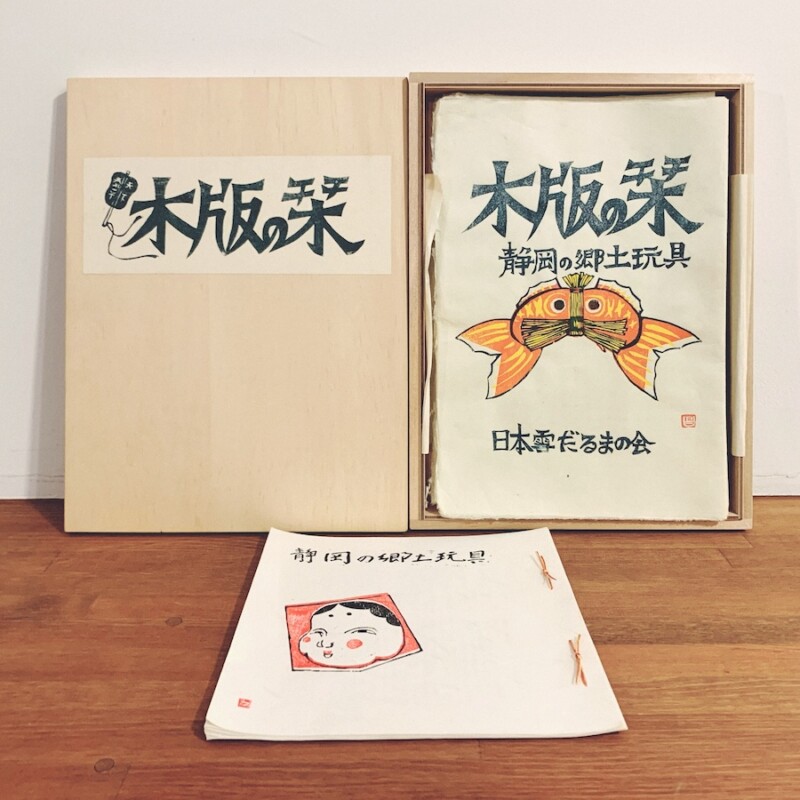 木版の栞
木版の栞
静岡の郷土玩具
日本雪だるまの会
静岡の郷土玩具